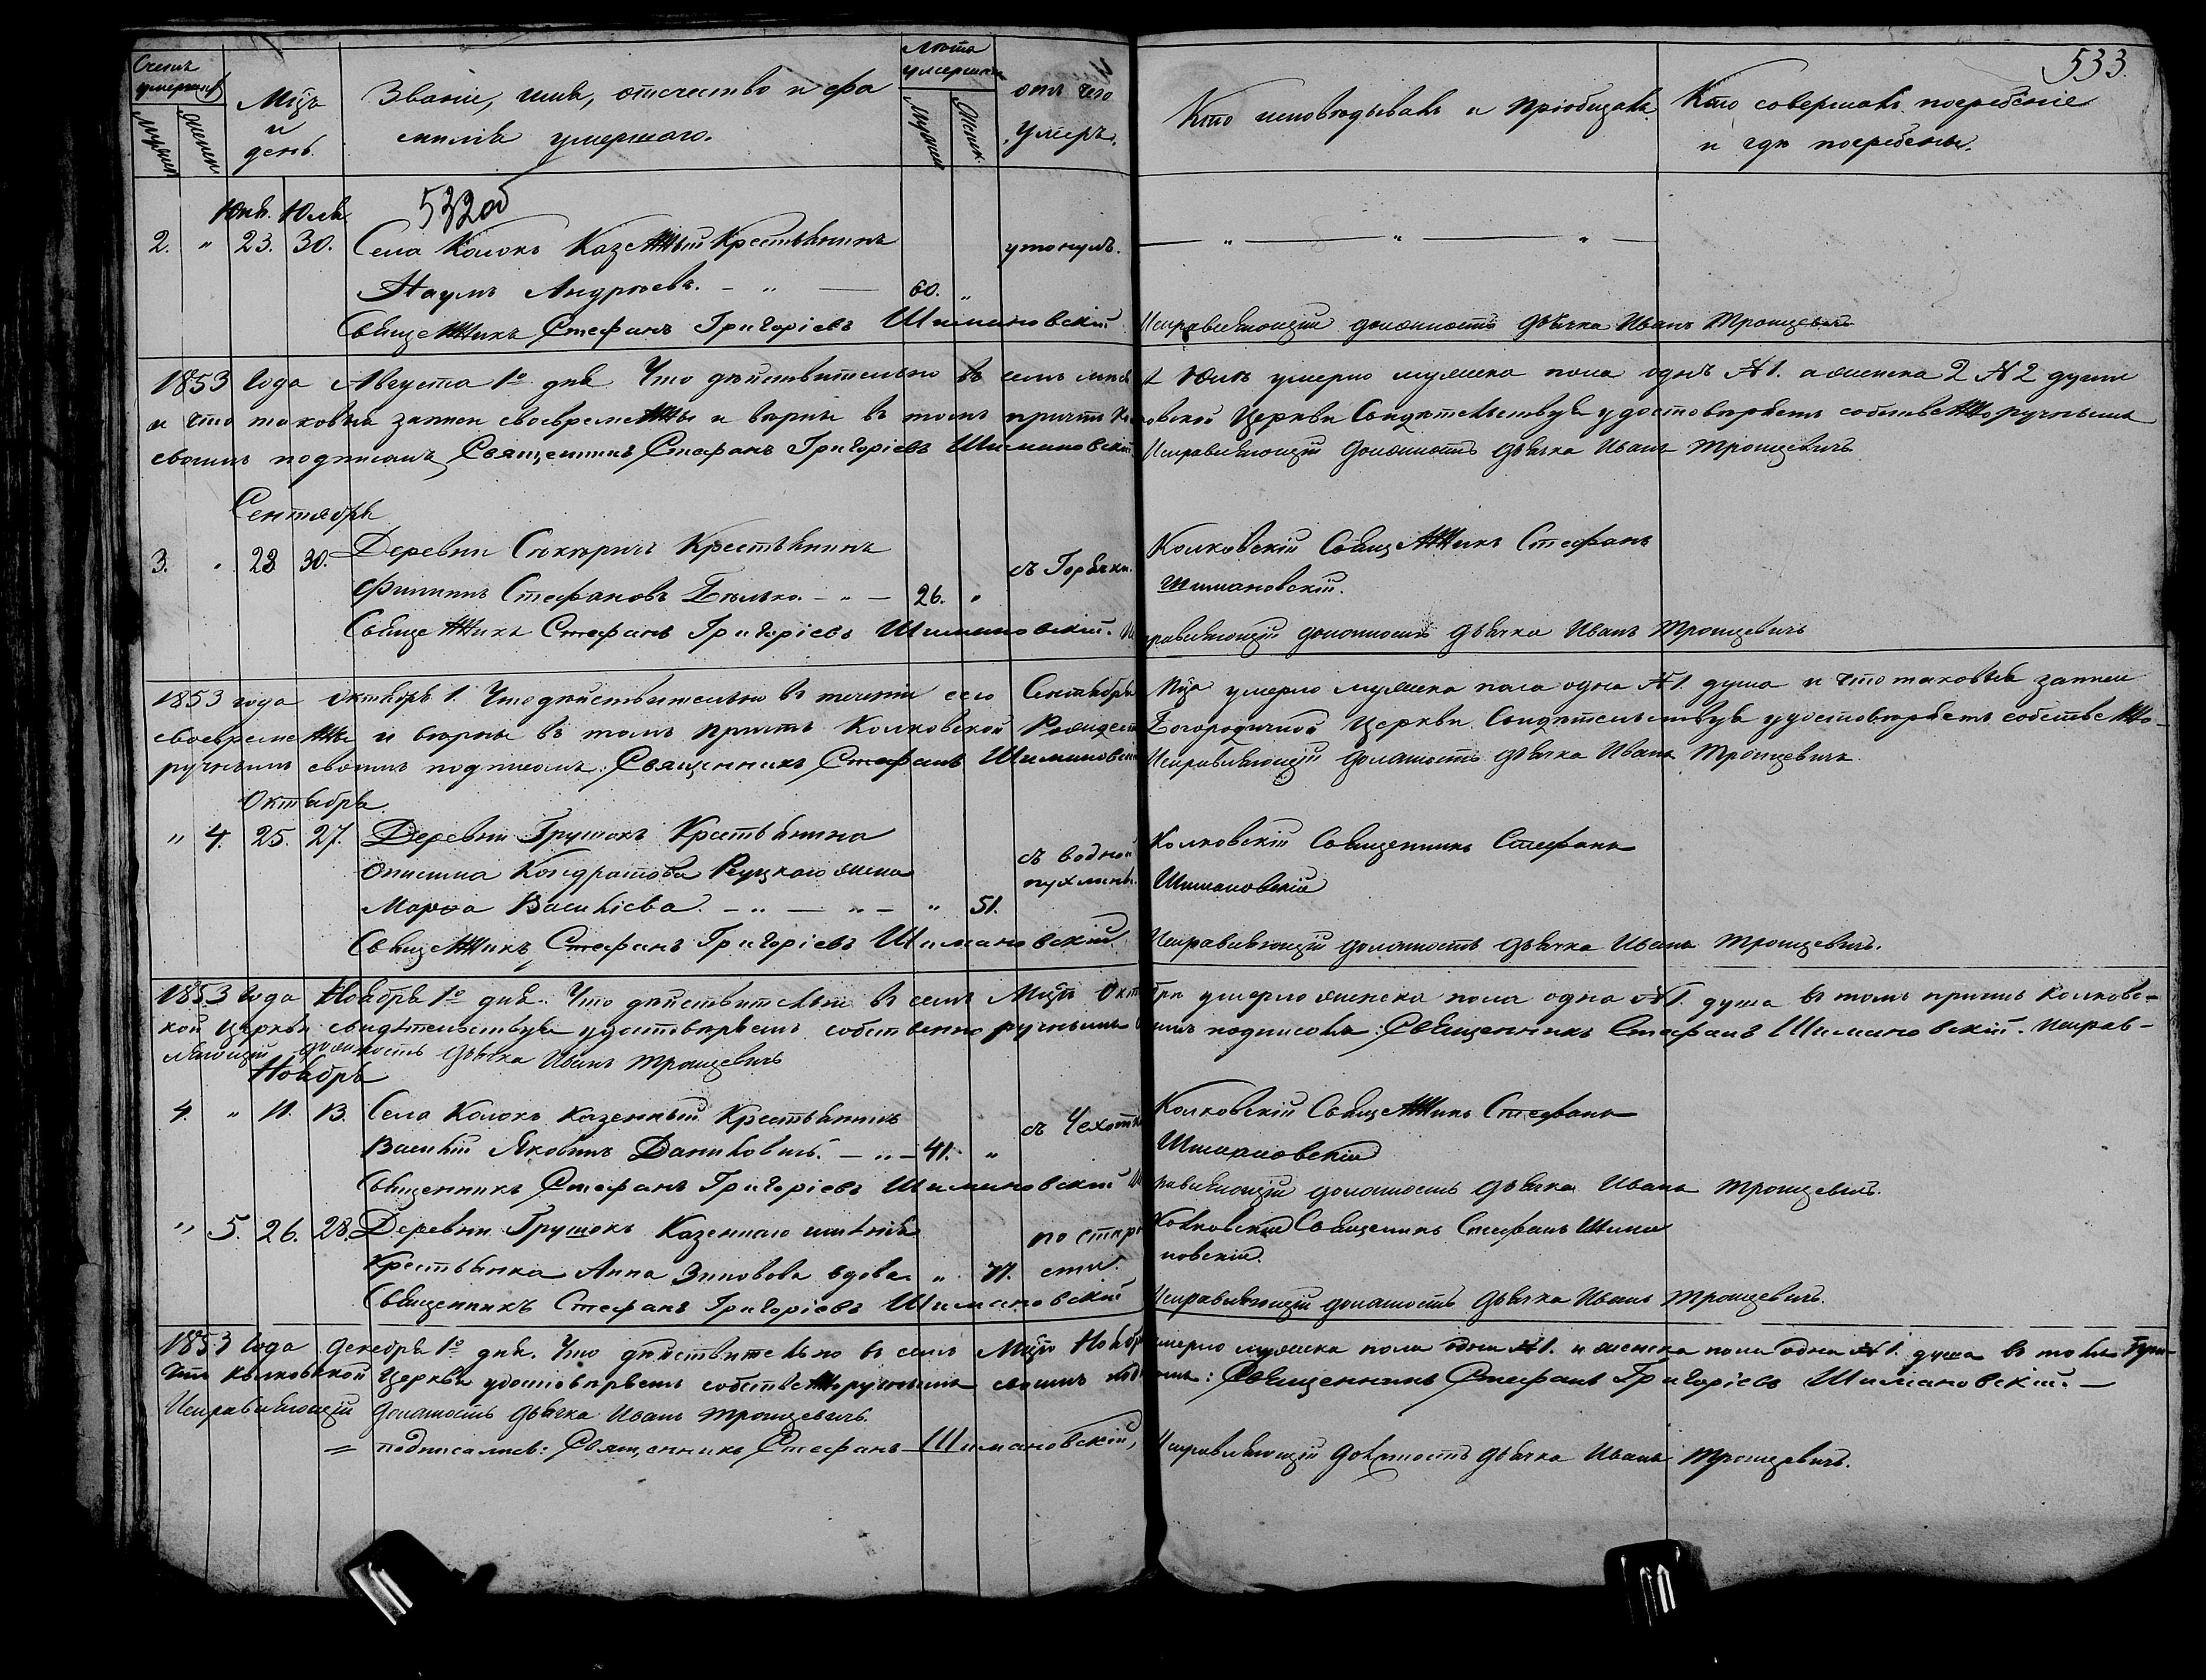 533.
Счетъ умершихъ
Мужеск. Женск.
Мцъ и день.
Званіе, имя, отчество и фамилія умершаго.
Лѣта умершаго
Мужеск. Женск.
отъ чего умеръ.
Кто исповѣдывалъ и пріобщалъ
Кто совершалъ погребеніе и гдѣ погребены.
532об
Юня. Юля
2. " 23. 30. Села Колокъ Казенный Крестьянинъ утонулъ. — " — " — " —
Наумъ Андрѣевъ. — " — 60. "
Священникъ Стефанъ Григоріевъ Шимановскій Исправляющій должность дьячка Иванъ Троицевичъ
1853 года Августа 1о дня Что дѣйствительно въ семъ мѣс Юлѣ умерло мужеска пола одна №1. а женска 2 №2 души
и что таковыя записи своевременны и вѣрны въ томъ причтъ Ко овской Церкви Свидѣтельствуя удостовѣряетъ собственноручнымъ
своимъ подписомъ Священникъ Стефанъ Григоріевъ Шимановскій Исправляющій должность дьячка Иванъ Троицевичъ
Сентябрь
3. " 28 30. Деревни Крестьянинъ съ Горячки. Колковскій Священникъ Стефанъ
Филиппъ Стефановъ — " — 26. " Шимановскій.
Священникъ Стефанъ Григоріевъ Шимановскій. Исправляющій должность дьячка Иванъ Троицевичъ
1853 года Октября 1. Что дѣйствительно въ теченіи сего Сентября Мца умерло мужеска пола одна №1. душа и что таковыя записи
своевременны и вѣрны въ томъ причтъ Колковской Рождест Богородичной Церкви Свидѣтельствуя удостовѣряетъ собственно-
ручнымъ своимъ подписомъ: Священникъ Стефанъ Шимановскій Исправляющій должность дьячка Иванъ Троицевичъ
Октябрь.
" 4. 25. 27. Деревни Грушокъ Крестьянина съ водной Колковскій Священникъ Стефанъ
Онисима Кондратова Реуцкаго жена пухлины. Шимановскій
Марѳа Васильева. — " — " — " 51.
Священникъ Стефанъ Григоріевъ Шимановскій. Исправляющій должность дьячка Иванъ Троицевичъ.
1853 года Ноября 1о дня. Что дѣйствительно въ семъ Мцѣ Октябрѣ умерло женска пола одна №1. душа въ томъ причтъ Колковс-
кой Церкви свидѣтельствуя удостовѣряетъ собственноручнымъ своимъ подписомъ: Священникъ Стефанъ Шимановскій. Исправ-
ляющій должность дьячка Иванъ Троицевичъ
Ноябрь
4. " 11. 13. Села Колокъ казенный Крестьянинъ съ Чехотки Колковскій Священникъ Стефанъ
Василій Яковлевъ Даниловичъ. — " — 41. " Шимановскій
Священникъ Стефанъ Григоріевъ Шимановскій Исправляющій должность дьячка Иванъ Троицевичъ.
" 5. 26. 28. Деревни Грушокъ Казеннаго имѣнія по старо Колковскій Священникъ Стефанъ Шима
Крестьянка Анна Зиновова вдова. " 71. сти. новскій.
Священникъ Стефанъ Григоріевъ Шимановскій Исправляющій должность дьячка Иванъ Троицевичъ.
1853 года Декабря 1о дня. Что дѣйствительно въ семъ Мцѣ Ноябрѣ умерло мужеска пола одна №1. и женска пола одна №1. душа въ томъ при-
чтъ Колковской Церкви удостовѣряетъ собственноручнымъ своимъ подписомъ: Священникъ Стефанъ Григоріевъ Шимановскій. —
Исправляющій должность дьячка Иванъ Троицевичъ.
= подписались: Священникъ Стефанъ Шимановскій, Исправляющій должность дьячка Иванъ Троицевичъ.